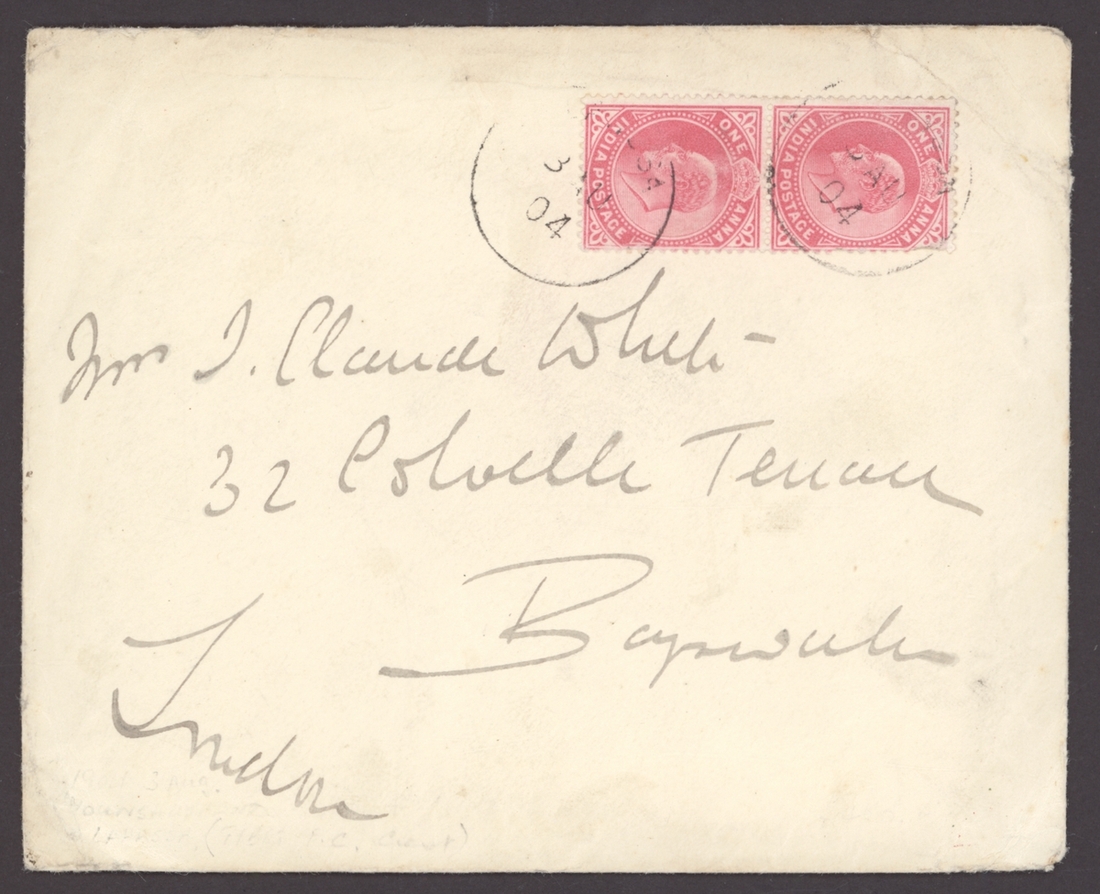 INDIA POSTAGE ONE ANNA
INDIA POSTAGE ONE ANNA
3 AU
04
AU
04
Mrs J. Claude White
32 Colville Terrace
Bayswater
London
3 Aug